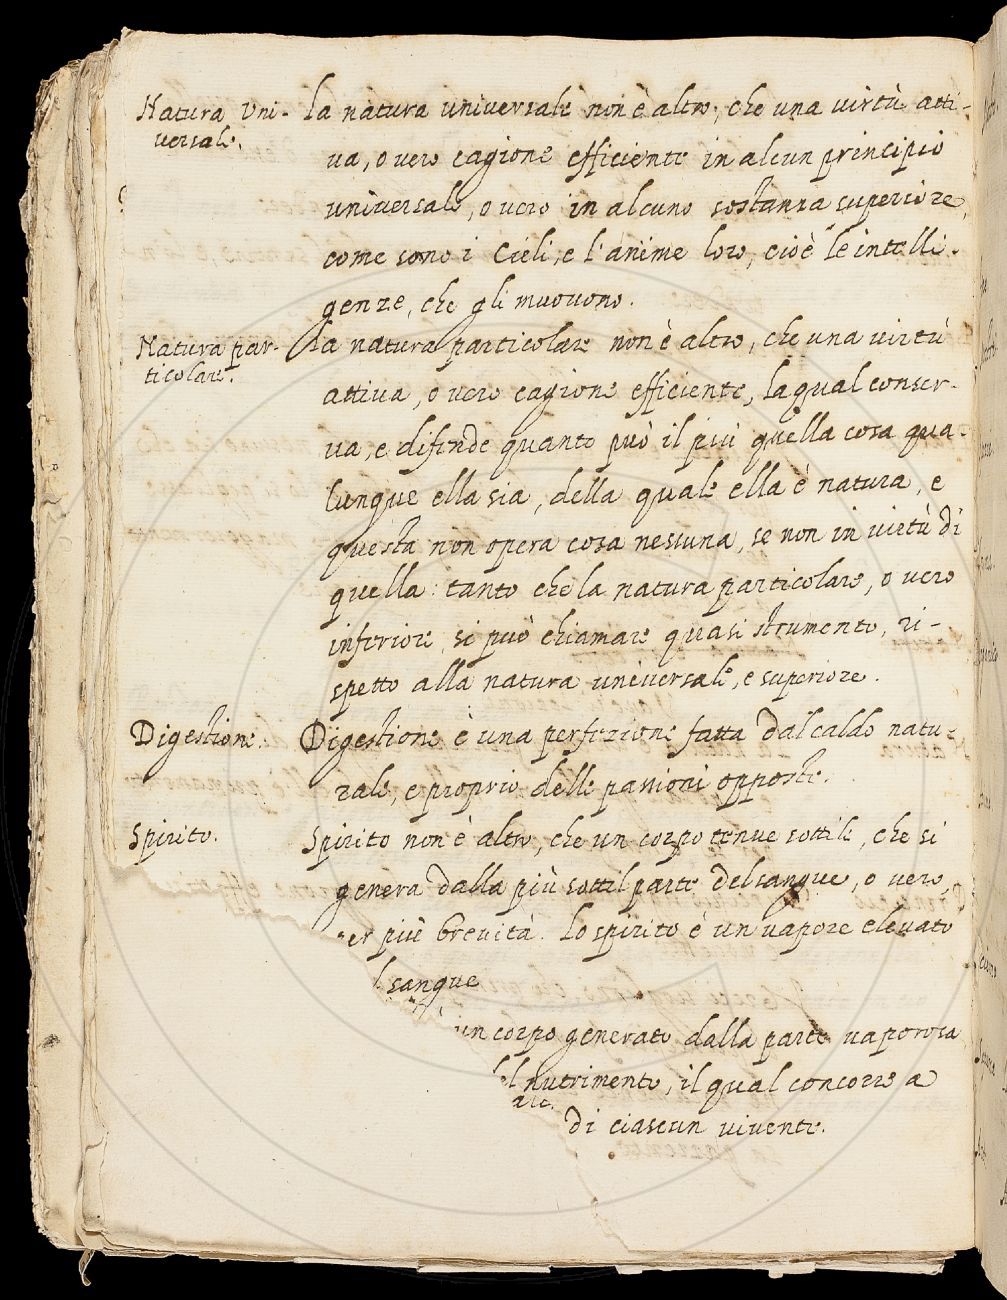 Natura Uni-
versale.
la natura universale non è altro, che una virtù atti-
va, o vero cagione efficiente in alcun principio
universale, o vero in alcuno sostanza superiore,
come sono i Cieli, e l'anime loro, cioè le intelli-
genze, che gli muovono.
Natura par-
ticolare.
la natura particolare non è altro, che una virtù
attiva, o vero cagione efficiente, la qual conser-
va, e difende quanto può il più quella cosa qua-
lunque ella sia, della quale ella è natura, e
questa non opera cosa nessuna, se non in virtù di
quella: tanto che la natura particolare, o vero
inferiore, si può chiamare quasi strumento, ri-
spetto alla natura universale, e superiore.
Digestione.
Digestione è una perfezione fatta dal caldo natu-
rale, e proprio delle passioni opposte.
Spirito.
Spirito non è altro, che un corpo tenue sottile, che si
genera dalla più sottil parte del sangue, o vero,
er più brevità. Lo spirito è un vapore elevato
l sangue
un corpo generato dalla parte vaporosa
el nutrimento, il qual concorre a
di ciascun vivente.